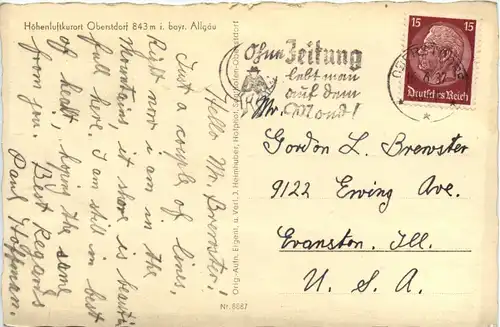 Höhenluftkurort Oberstdorf 843 m i. bayr. Allgäu
Hello Mr. Brewster!
Just a couple of lines,
Right now I am in the
Mountains, it shore is beauti
full here, I am still in best
of healt, hoping the same
from you.
Best Regards
Paul Hoffman.
Orig.-Aufn. Eigent. u. Verl. J. Heimhuber, Hofphot. Sonthofen-Oberstdorf
Nr. 8887
Ohne Zeitung
lebt man
auf dem
Mond!
15 15
Deutsches Reich
Mr.
Gordon L. Brewster
9122 Ewing Ave.
Evanston. Ill.
U. S. A.